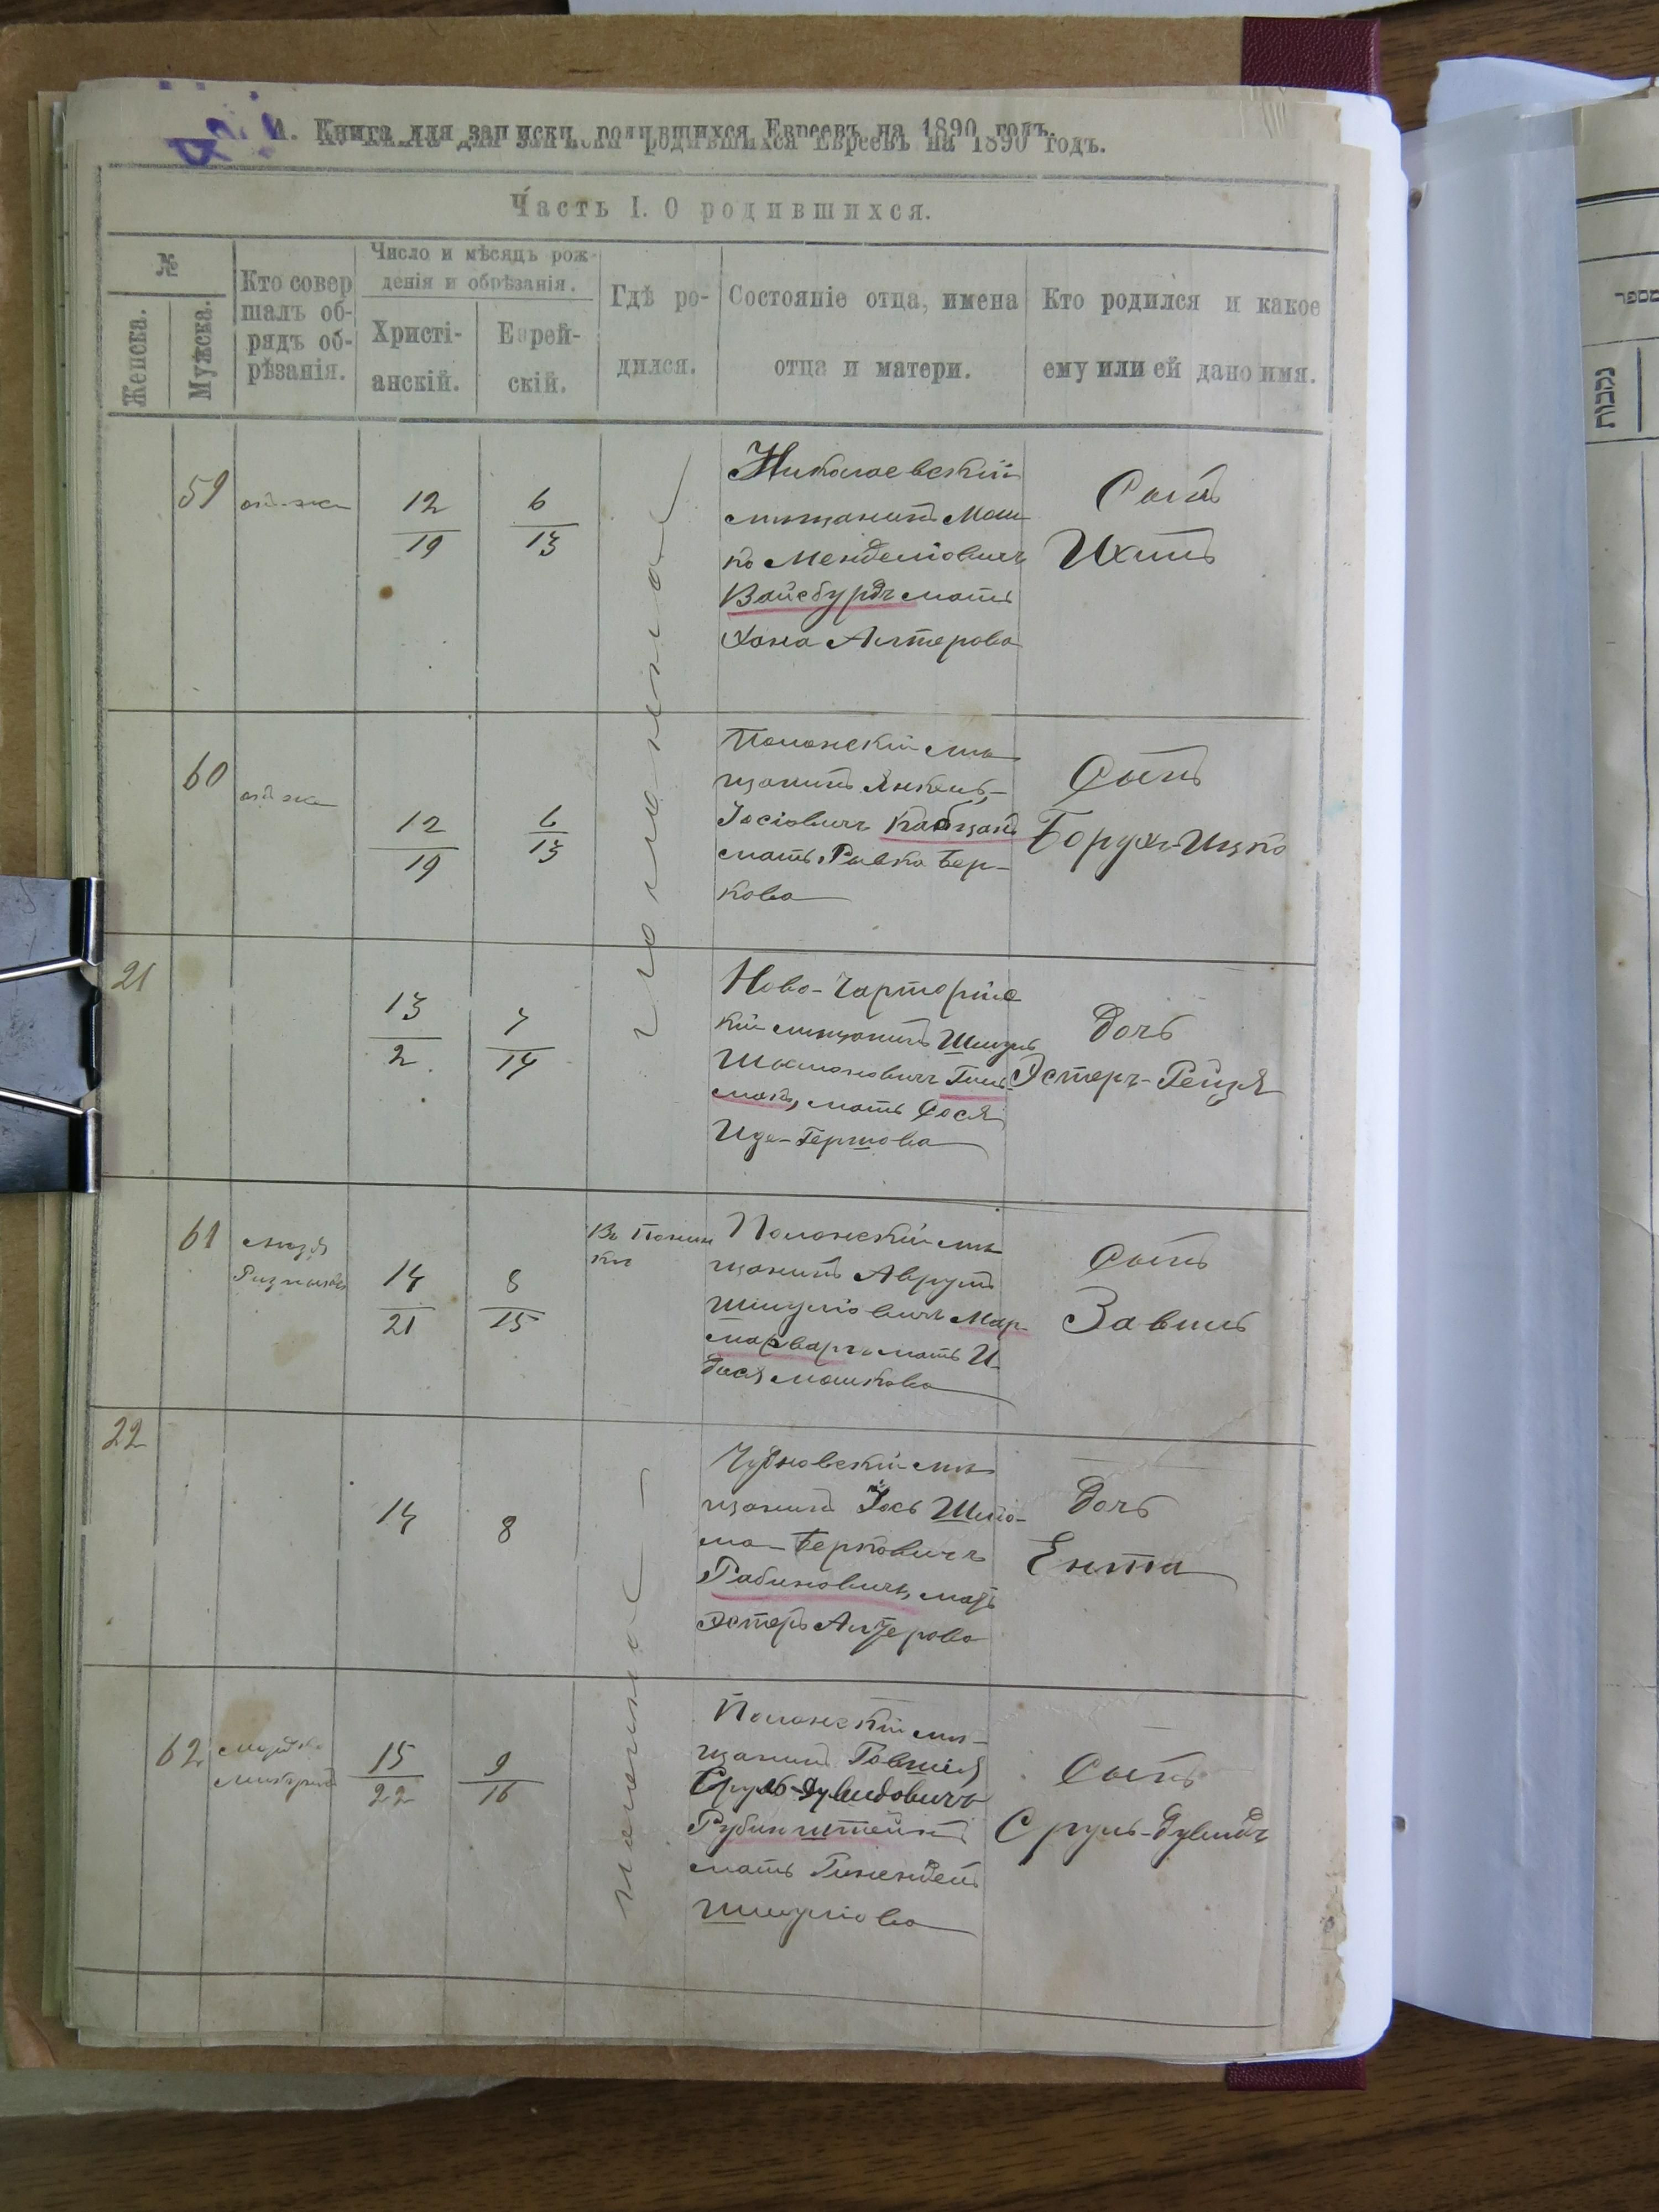 Книга для записки родившихся Евреевъ на 1890 годъ.
Часть I. О родившихся.
№
Женска.
Мужска.
Кто совер
шалъ об-
рядъ об-
рѣзанія.
Число и мѣсяцъ рож-
денія и обрѣзанія.
Христі-
анскій.
Еврей-
скій.
Гдѣ ро-
дился.
Состояніе отца, имена
отца и матери.
Кто родился и какое
ему или ей дано имя.
59
12
19
6
13
Николаевскій
мѣщанинъ Мош
ко Менделіовичъ
Вайсбурдъ мать
Хана Алтерова
Сынъ
60
12
19
6
13
Полонскій мѣ
щанинъ Янкель
Іосіовичъ Кабцанъ
мать Ривка Бер-
кова
Сынъ
Борухъ-Ицко
21
13
2
7
14
Ново-Чарторійс
кій мѣщанинъ Шмуль
мать Сося
Иде-Гершова
Дочь
Эстеръ-Рейзя
61
14
21
8
15
Въ Понин
ки
Полонскій мѣ
щанинъ Аврумъ
Шмуліовичъ Мар
мать И
дася Мошкова
Сынъ
Завиль
22
14
8
Чудновскій мѣ
щанинъ Іось Шліо-
ма-Берковичъ
Рабиновичъ, мать
Эстеръ Алтерова
Дочь
Ента
62
15
22
9
16
Полонскій мѣ-
щанинъ Говшія
Сруль-Дувидовичъ
Рубинштейнъ
мать Гинендель
Шмуліова
Сынъ
Сруль-Дувидъ
מספר
נקבות